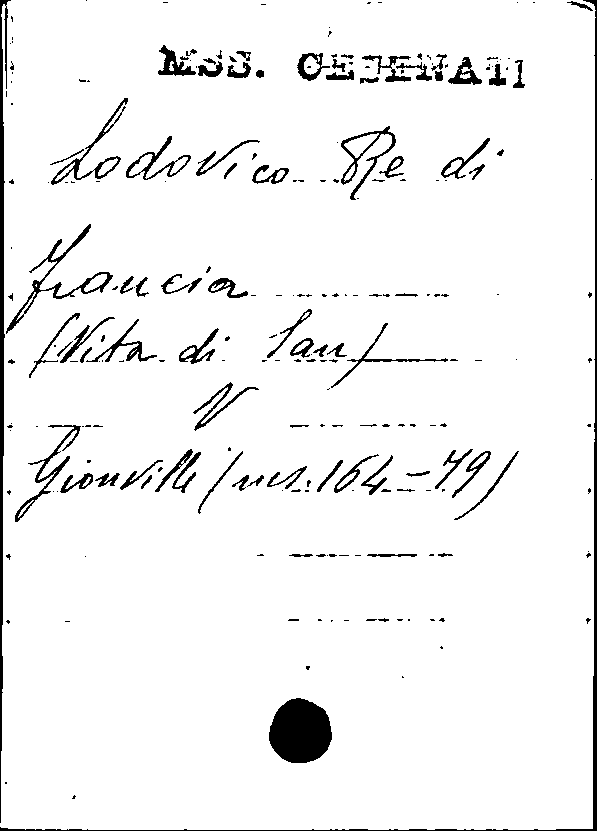 MSS. CESENATI
Lodovico Re di
Francia
(Vita di San)
V
Gionville (ms. 164-79)